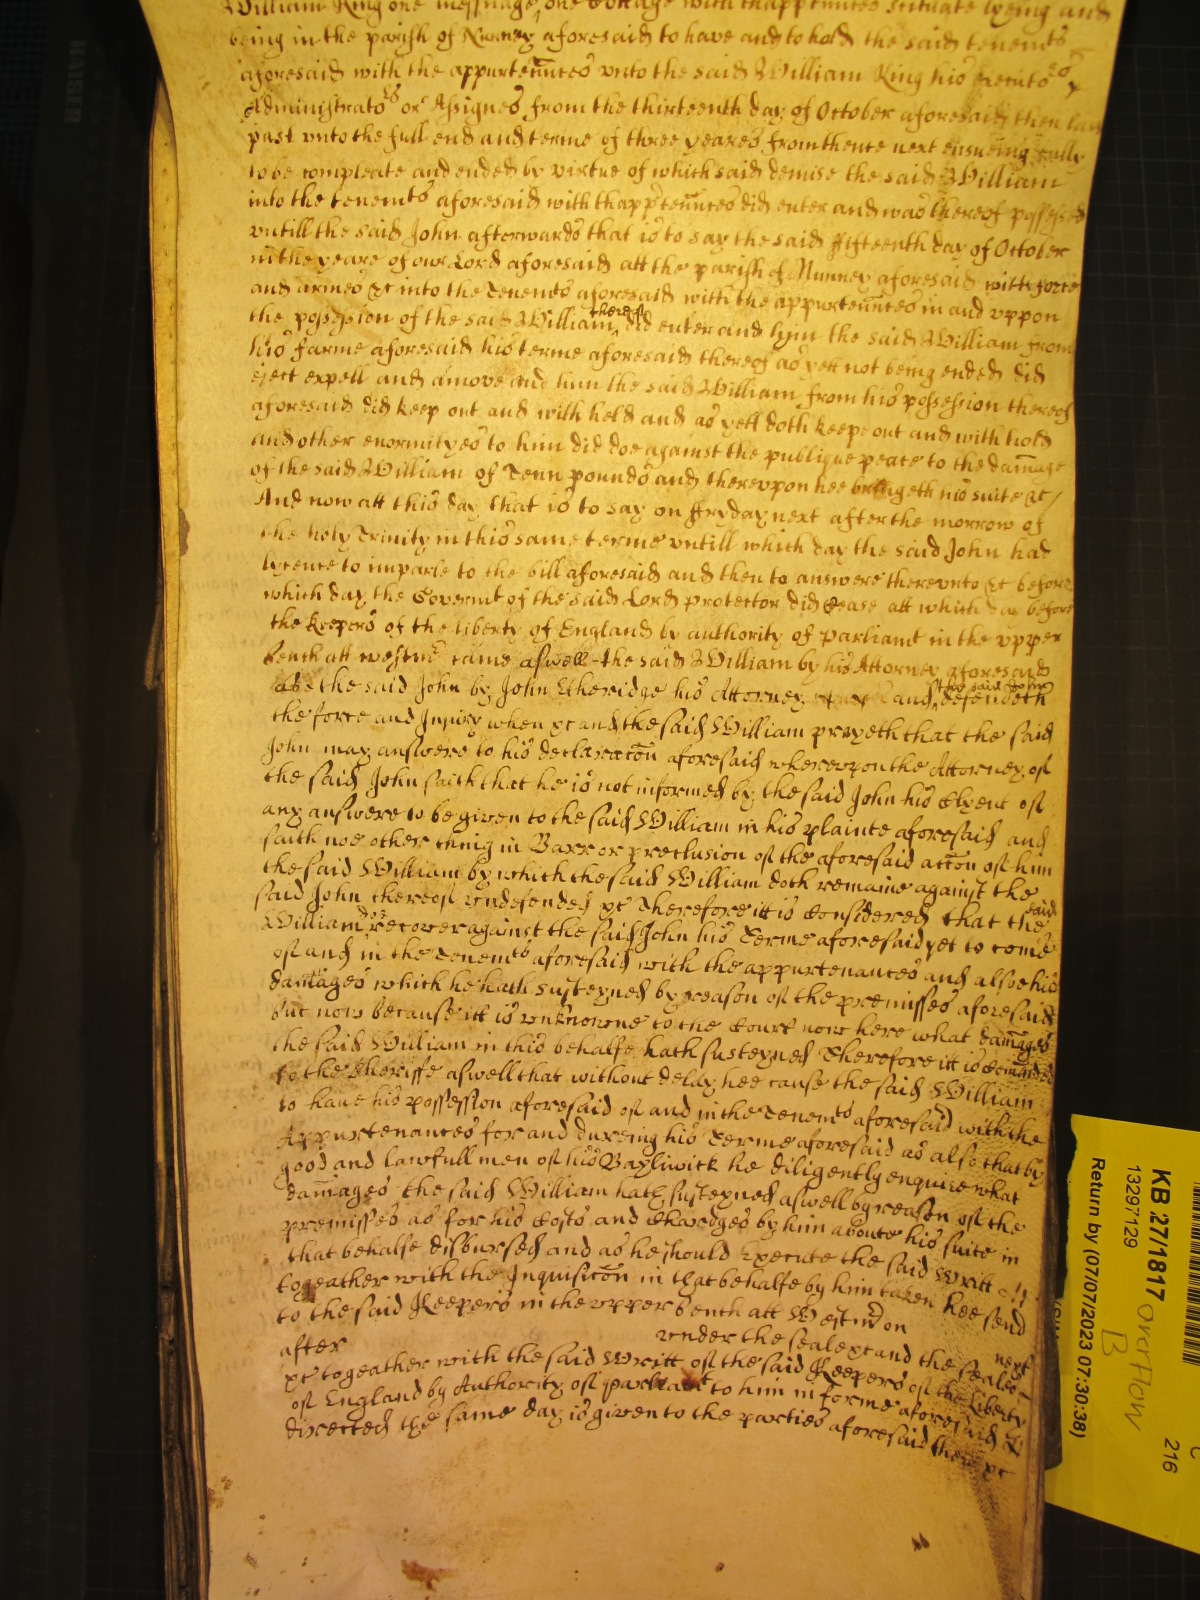 William King one messuage, one Cottage with thapptennces scituate lyeing and
being in the parish of Nunney aforesaid to have and to hold the said tenemts
aforesaid with the appurtennces unto the said William King his executors
Administrators or Assignes from the thirteenth day of October aforesaid then last
past unto the full end and terme of three yeares from thence next ensueing fully
to be compleate and ended by virtue of which said demise the said William
into the tenemts aforesaid with thapptennces did enter and was thereof possessed
untill the said John afterwards that is to say the said fifteenth day of October
in the yeare of our Lord aforesaid att the parish of Nunney aforesaid with force
and armes &c into the Tenemts aforesaid with the appurtennces in and uppon
the possession of the said William thereof did enter and hym the said William from
his farme aforesaid his terme aforesaid thereof as yett not being ended did
eject expell and amove and him the said William from his possession thereof
aforesaid did keep out and with held and as yett doth keepe out and with hold
and other enormityes to him did doe against the publique peace to the damage
of the said William of Tenn pounds and thereuppon hee bringeth his suite &c /
And now att this day that is to say on ffryday next after the morrow of
the holy Trinity in this same terme untill which day the said John had
lycence to imparle to the bill aforesaid and then to answere thereunto &c before
which day the Governmt of the said Lord protector did cease att which day before
the keepers of the liberty of England by authority of parliamt in the upper
bench att westmr came aswell the said William by his Attorney aforesaid
as the said John by John Etheridge his Attorney and the said John defendeth
the force and Injury when &c and the said William prayeth that the said
John may answere to his declaracon aforesaid whereupon the Attorney of
the said John saith that he is not informed by the said John his Clyent of
any answere to be given to the said William in his plainte aforesaid and
saith noe other thing in Barr or preclusion of the aforesaid accon of him
the said William by which the said William doth remaine against the
said John thereof undefended &c Therefore itt is considered that the said
William doe recover against the said John his Terme aforesaid yet to come
of and in the Tenemts aforesaid with the appurtenances and alsoe his
damages which he hath susteyned by reason of the premisses aforesaid
but now because itt is unknowne to the Court now here what damages
the said William in this behalfe hath susteyned Therefore itt is Comanded
to the Sheriffe aswell that without delay hee cause the said William
to have his possession aforesaid of and in the Tenemts aforesaid with the
Appurtenances for and dureing his Terme aforesaid as also that by
good and lawfull men of his Bayliwick he diligently enquire what
damages the said William hath susteyned aswell by reason of the
premisses as for his Costs and Chardges by him aboute his suite in
that behalfe disbursed and as he should Execute the said Writt
togeather with the Inquisicon in that behalfe by him taken hee send
to the said Keepers in the upper bench att Westmr on
after under the seale &c and the seales next
&c togeather with the said Writt of the said Keepers of the Liberty
of England by Authority of parliamt to him in forme aforesaid
directed the same day is given to the parties aforesaid there &c
KB 27/1817
13297129
Overflow
B
Return by (07/07/2023 07:30:38)
216
KAISER